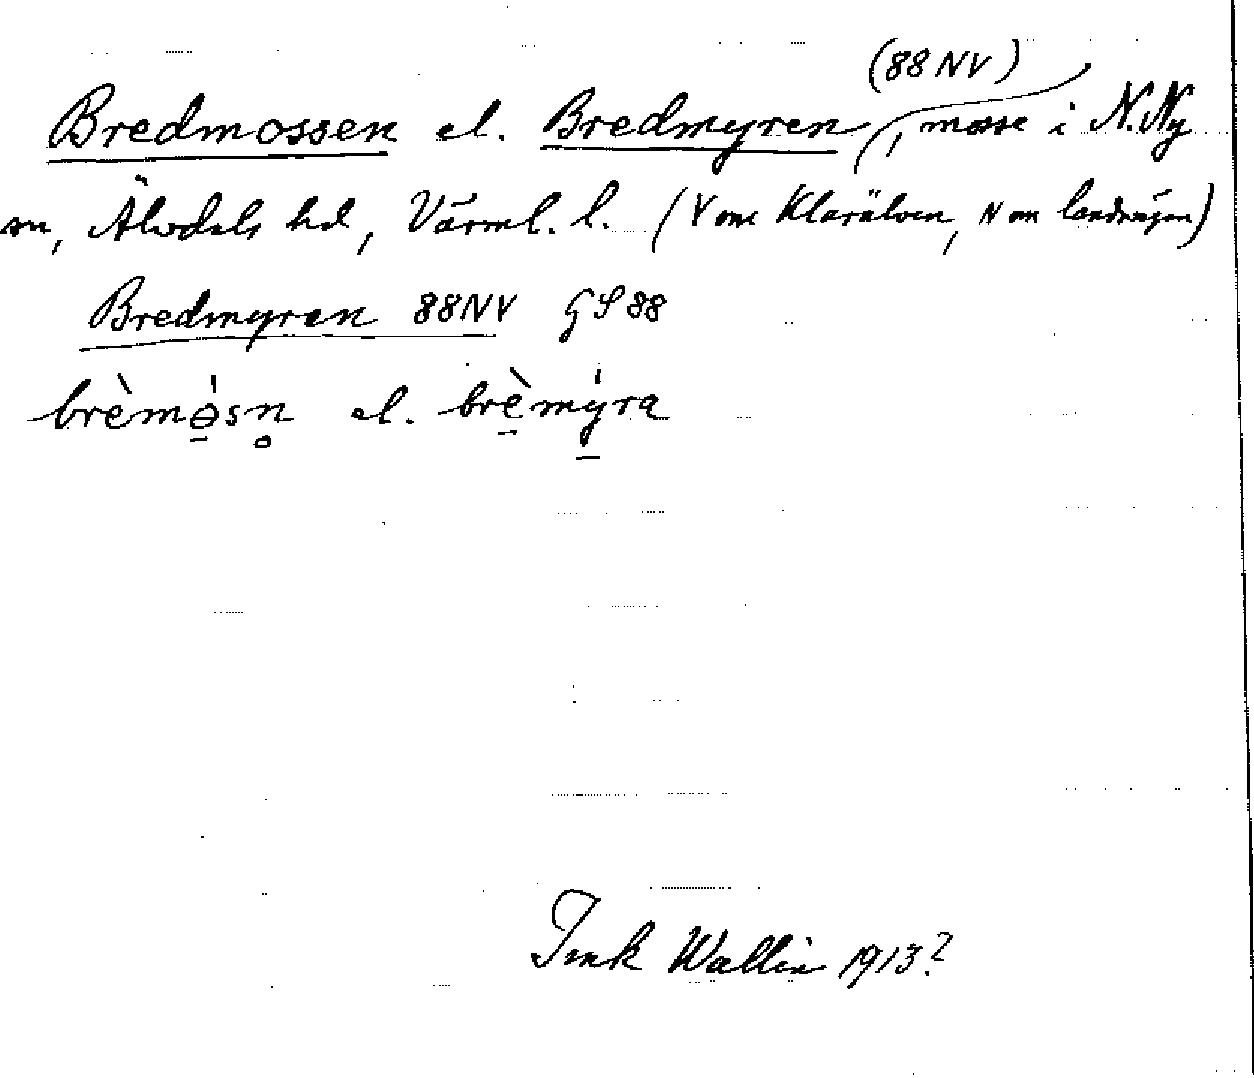 (88 NV)
Bredmossen el. Bredmyren, mosse i N. Ny
sn, Älvdals hd, Värml. l. (V om Klarälven, N om landsvägen)
Bredmyren 88NV GS 88
brèmo̠̍sn̥ el. brè̠my̠̍ra
Wallin 1913?